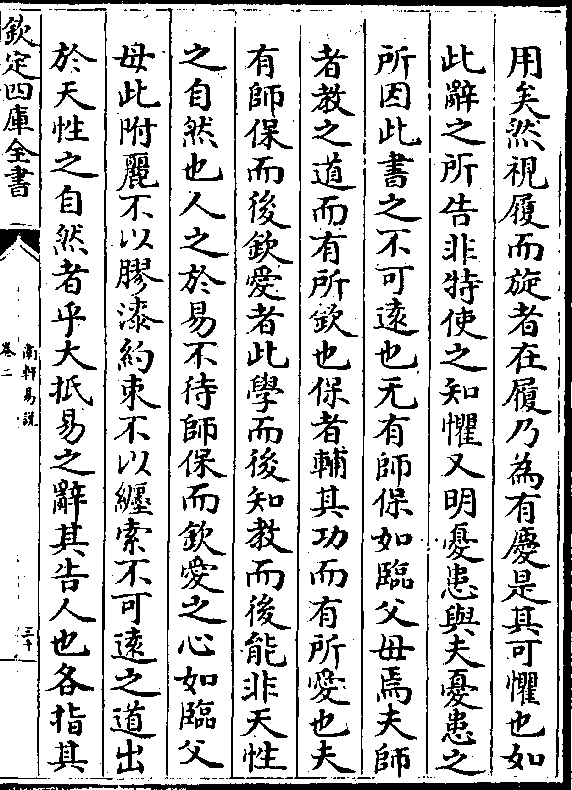 用矣然視履而旋者在履乃為有慶是其可懼也如
此辭之所告非特使之知懼又明憂患與夫憂患之
所因此書之不可逺也无有師保如臨父母焉夫師
者教之道而有所欽也保者輔其功而有所愛也夫
有師保而後欽愛者此學而後知教而後能非天性
之自然也人之於易不待師保而欽愛之心如臨父
母此附麗不以膠漆約束不以纏索不可逺之道出
於天性之自然者乎大抵易之辭其告人也各指其
欽定四庫全書
南軒易說
卷二
三十